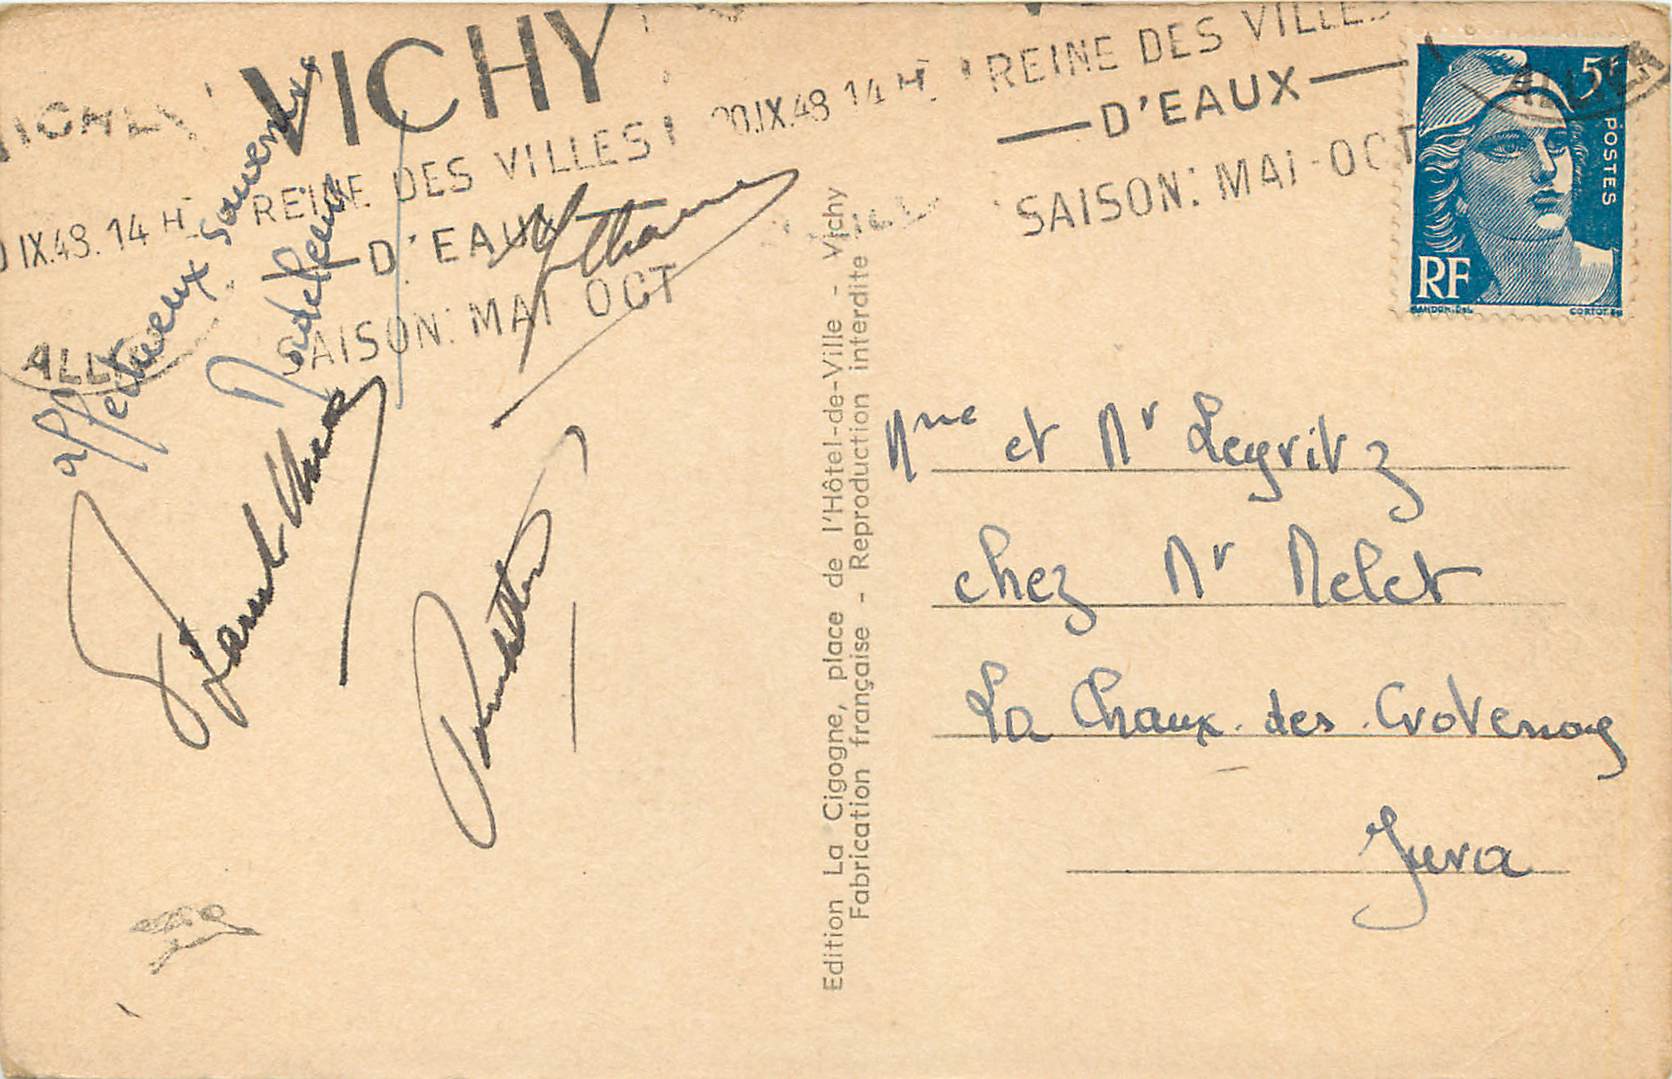 VICHY
REINE DES VILLES
D'EAUX
SAISON: MAI OCT
IX.48. 14 H
ALL
20.IX.48 14 H
REINE DES VILLES
D'EAUX
SAISON: MAI-OCT
5F
POSTES
RF
GANDON.DEL
CORTOT.SC
affectueux souvenirs
Edition La Cigogne, place de l'Hôtel-de-Ville - Vichy
Fabrication française - Reproduction interdite
Mme et Mr Leyritz
chez Mr Melet
La Chaux-des-Crotenay
Jura